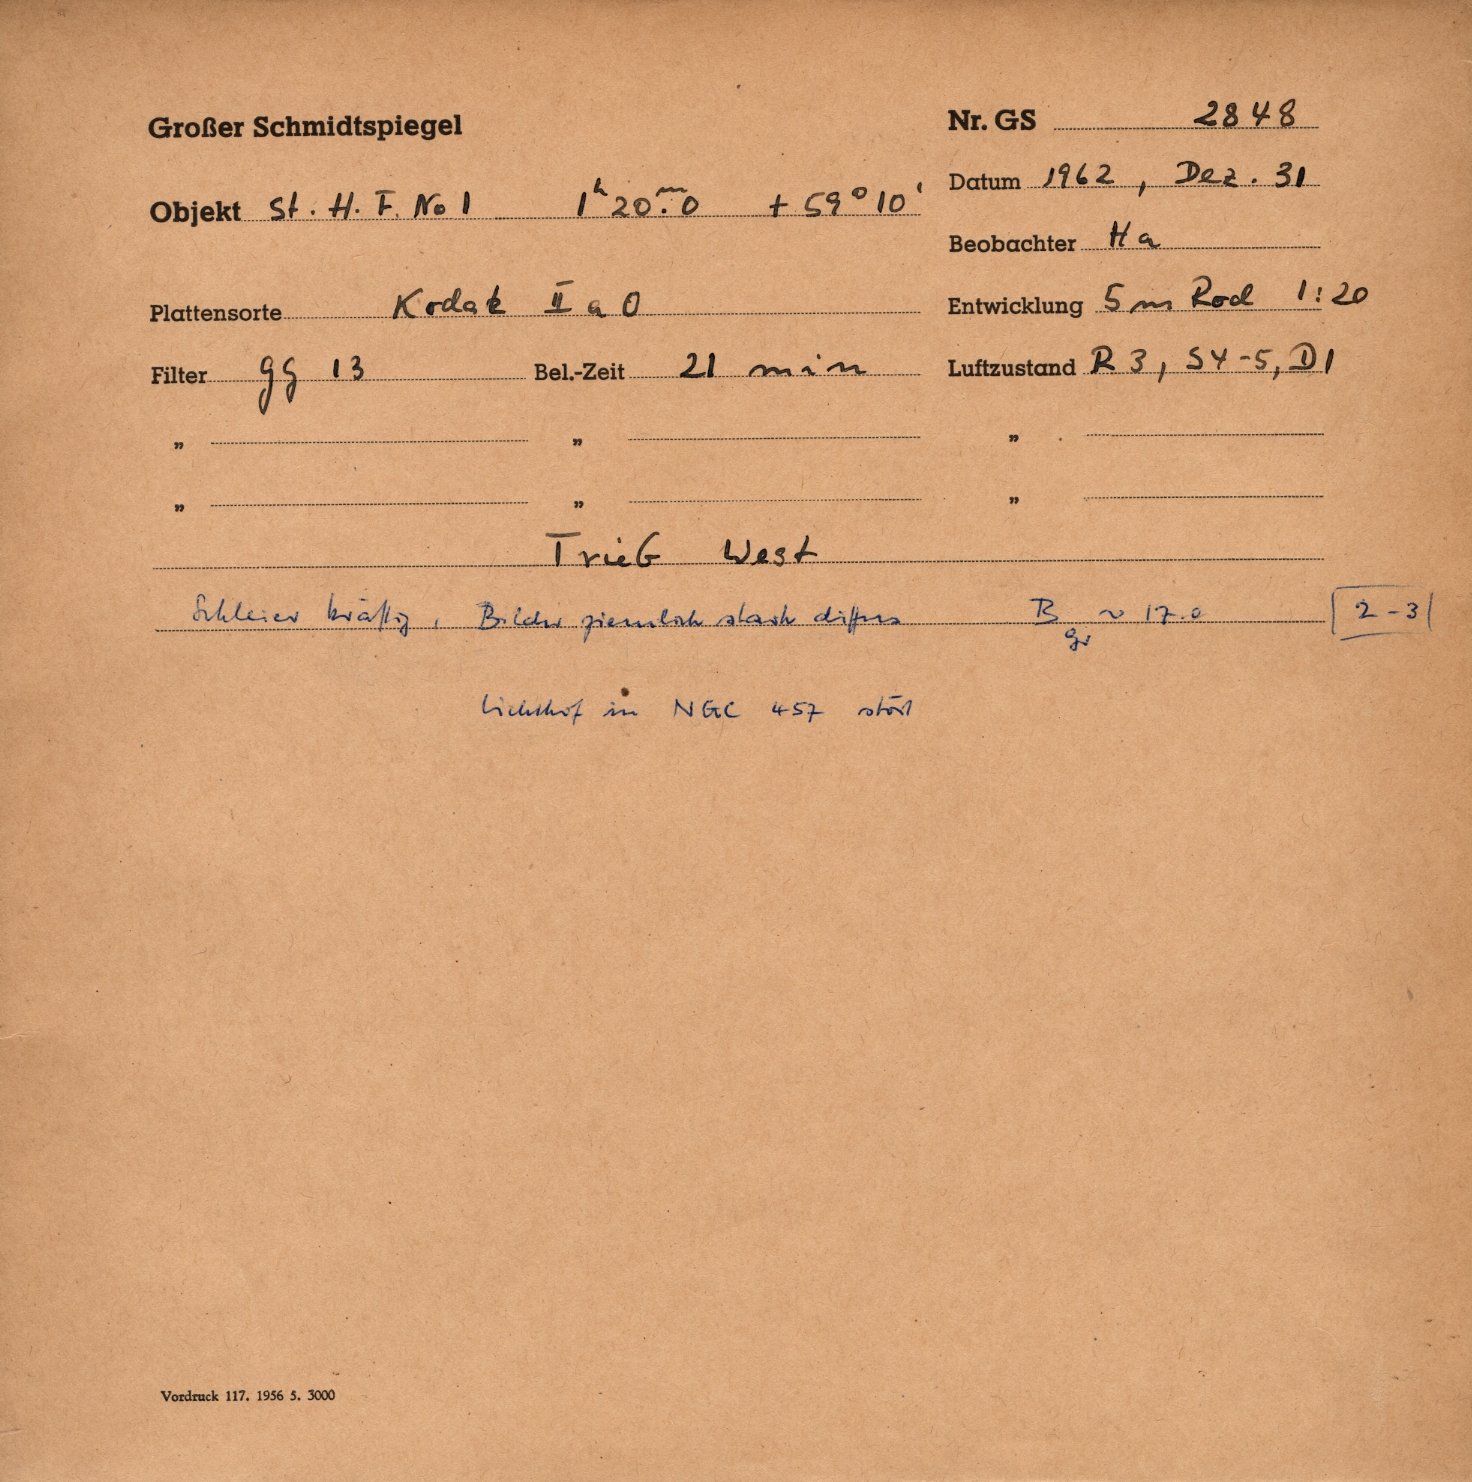 Großer Schmidtspiegel
Nr. GS 2848
Datum 1962, Dez. 31
Objekt St. H. F. No 1 1h 20m.0 + 59° 10'
Beobachter Ha
Plattensorte Kodak II a O
Entwicklung 5 m Rod 1:20
Filter gg 13 Bel.-Zeit 21 min Luftzustand R 3, S4-5, D1
„ „ „
„ „ „
Trieb West
Schleier kräftig, Bilder ziemlich stark diffus B gr ~ 17.0 2-3
Lichthof in NGC 457 stört
Vordruck 117. 1956 5. 3000